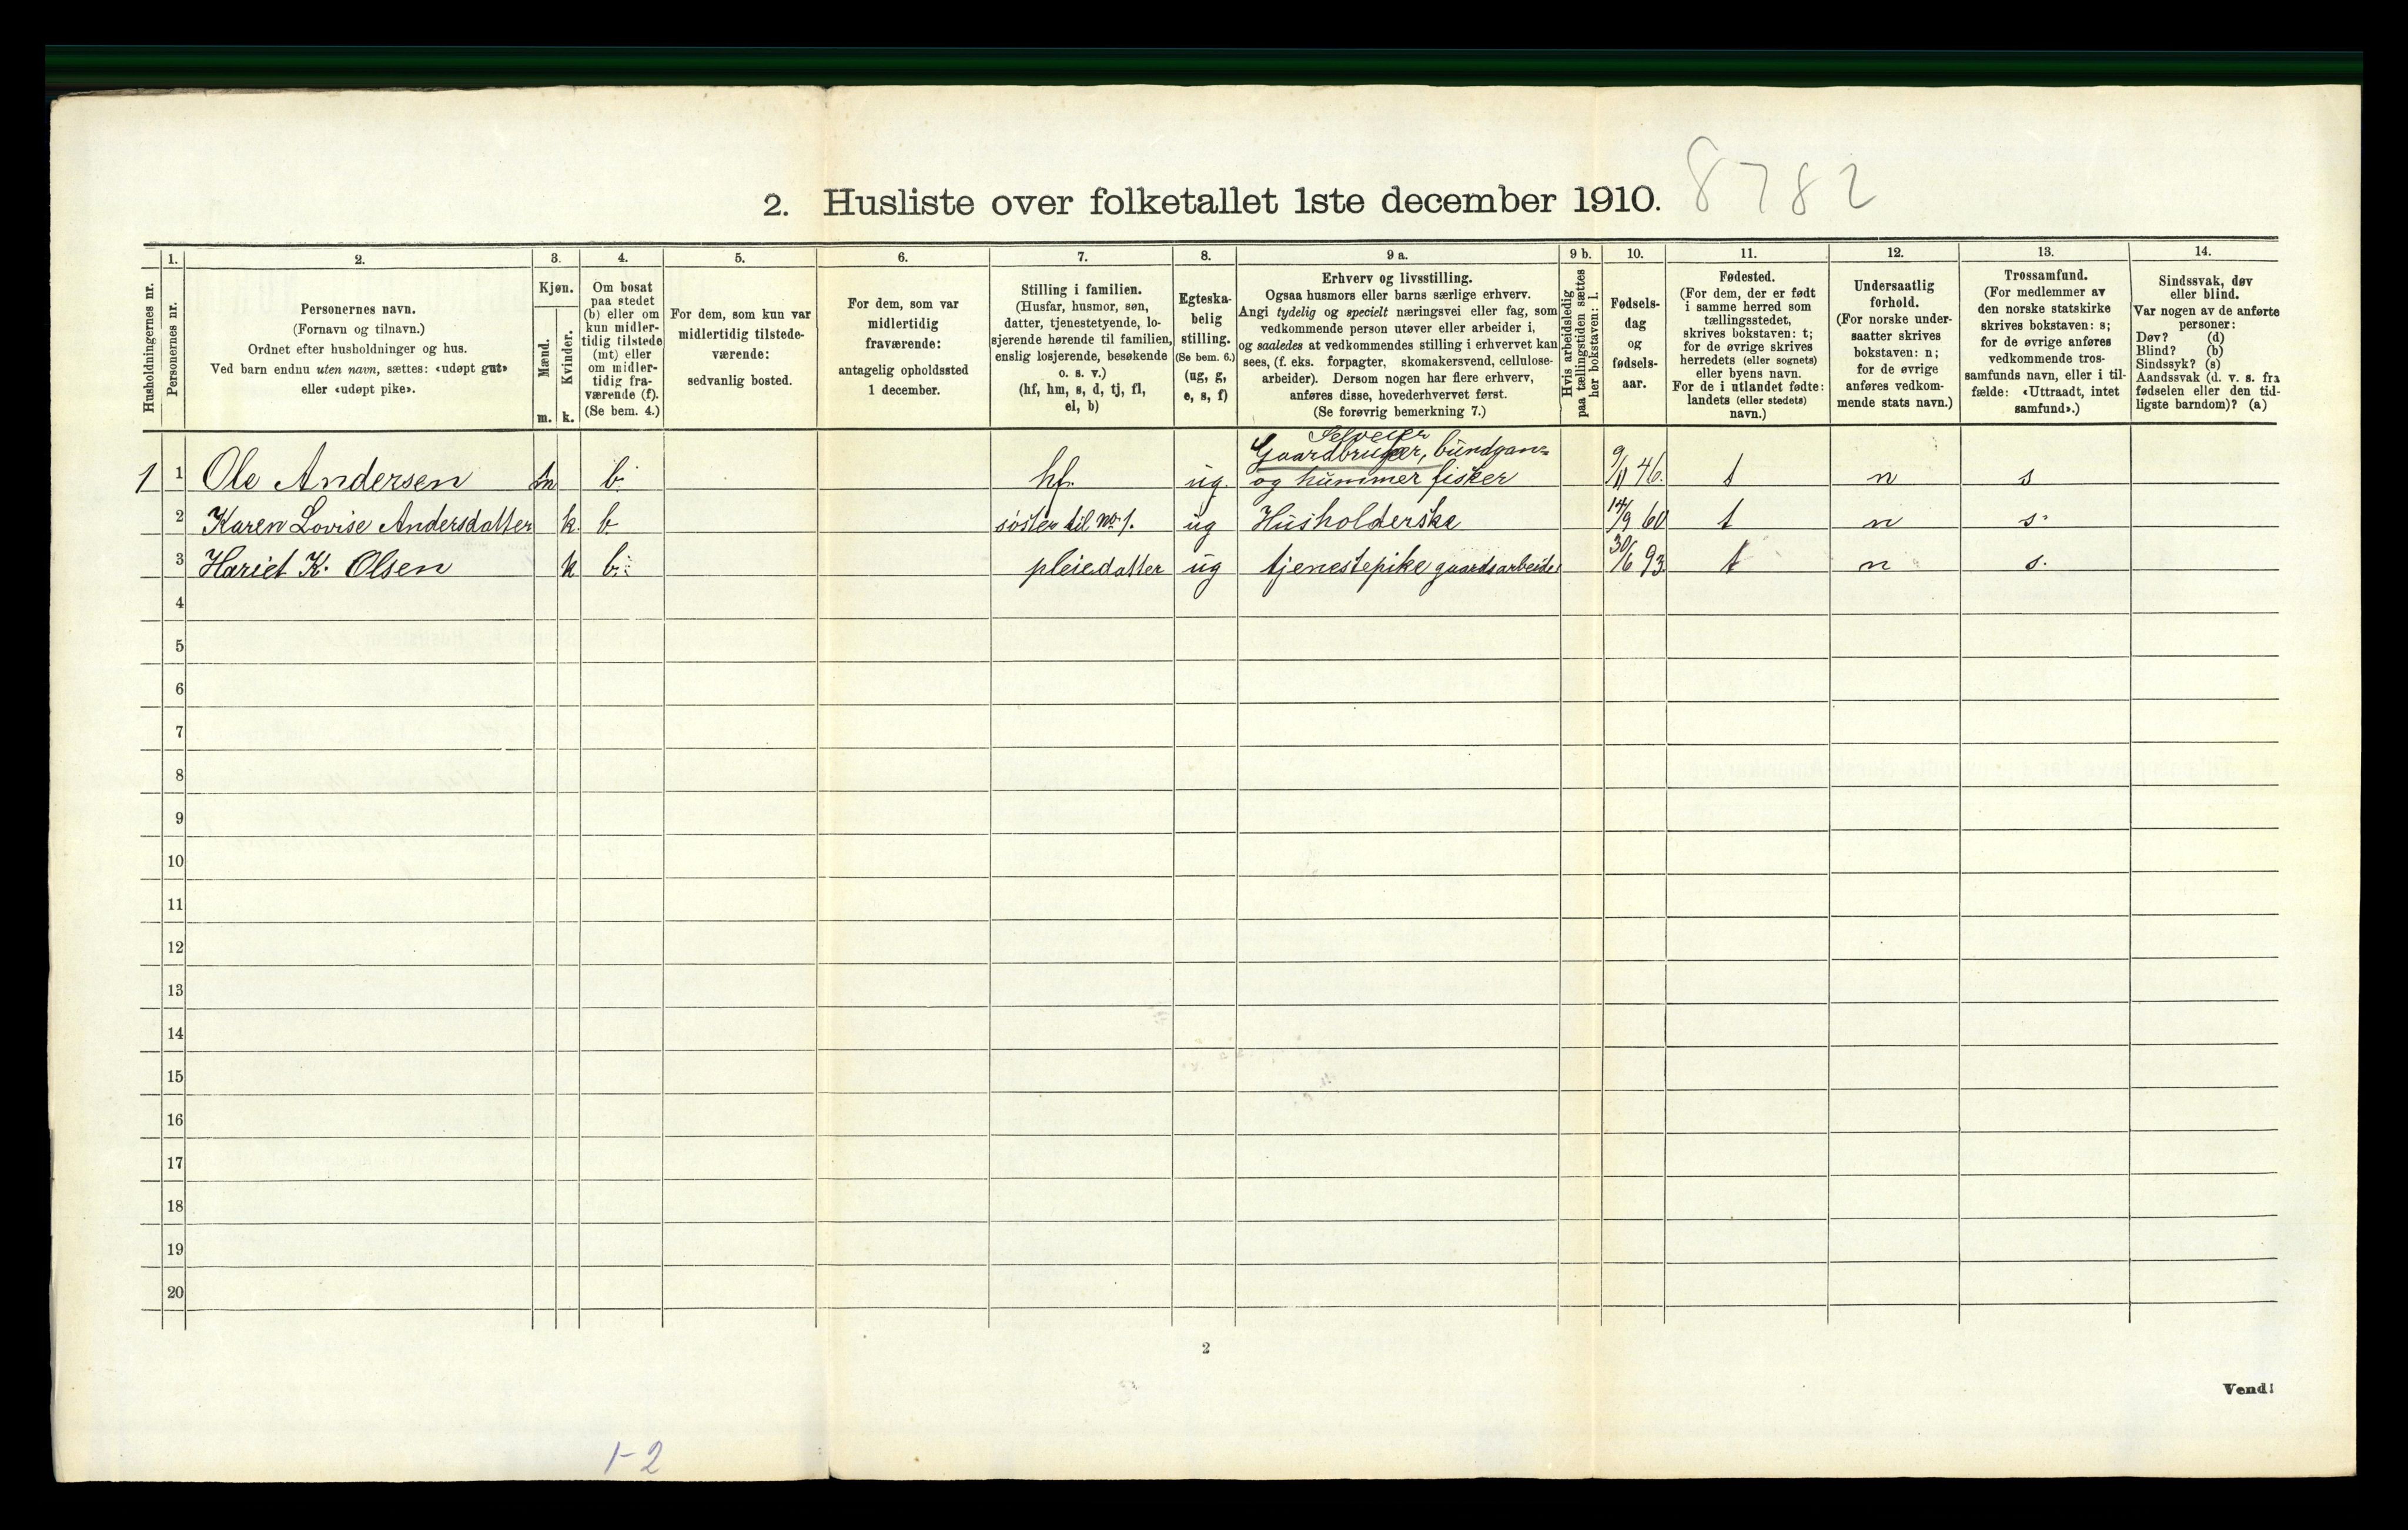 2. Husliste over folketallet 1ste december 1910. 8782
Husholdningernes nr.
1.
Personernes nr.
2.
Personernes navn.
(Fornavn og tilnavn.)
Ordnet efter husholdninger og hus.
Ved barn endnu uten navn, sættes: «udøpt gut»
eller «udøpt pike».
3.
Kjøn.
Mænd.
m.
Kvinder.
k.
4.
Om bosat
paa stedet
(b) eller om
kun midler-
tidig tilstede
(mt) eller
om midler-
tidig fra-
værende (f).
(Se bem. 4.)
5.
For dem, som kun var
midlertidig tilstede-
værende:
sedvanlig bosted.
6.
For dem, som var
midlertidig
fraværende:
antagelig opholdssted
1 december.
7.
Stilling i familien.
(Husfar, husmor, søn,
datter, tjenestetyende, lo-
sjerende hørende til familien,
enslig losjerende, besøkende
o. s. v.)
(hf, hm, s, d, tj, fl,
el, b)
8.
Egteska-
belig
stilling.
(Se bem. 6.)
(ug, g,
e, s, f)
9 a.
Erhverv og livsstilling.
Ogsaa husmors eller barns særlige erhverv.
Angi tydelig og specielt næringsvei eller fag, som
vedkommende person utøver eller arbeider i,
og saaledes at vedkommendes stilling i erhvervet kan
sees, (f. eks. forpagter, skomakersvend, cellulose-
arbeider). Dersom nogen har flere erhverv,
anføres disse, hovederhvervet først.
(Se forøvrig bemerkning 7.)
9 b.
Hvis arbeidsledig
paa tællingstiden sættes
her bokstaven: l.
10.
Fødsels-
dag
og
fødsels-
aar.
11.
Fødested.
(For dem, der er født
i samme herred som
tællingsstedet,
skrives bokstaven: t;
for de øvrige skrives
herredets (eller sognets)
eller byens navn.
For de i utlandet fødte:
landets (eller stedets)
navn.)
12.
Undersaatlig
forhold.
(For norske under-
saatter skrives
bokstaven: n;
for de øvrige
anføres vedkom-
mende stats navn.)
13.
Trossamfund.
(For medlemmer av
den norske statskirke
skrives bokstaven: s;
for de øvrige anføres
vedkommende tros-
samfunds navn, eller i til-
fælde: «Uttraadt, intet
samfund».)
14.
Sindssvak, døv
eller blind.
Var nogen av de anførte
personer:
Døv? (d)
Blind? (b)
Sindssyk? (s)
Aandssvak (d. v. s. fra
fødselen eller den tid-
ligste barndom)? (a)
Selveier
Gaardbruger, bundgan=
1 1 Ole Andersen m b. hf. ug. og hummer fisker 9/11 46. t n s
2 Karen Lovise Andersdatter k. b. søster til No 1. ug Husholderske 14/9 60 t n s.
3 Hariet K. Olsen k b. pleiedatter ug tjenestepike gaardsarbeide 30/6 93. t n s.
4
5
6
7
8
9
10
11
12
13
14
15
16
17
18
19
20
2
Vend!
1-2